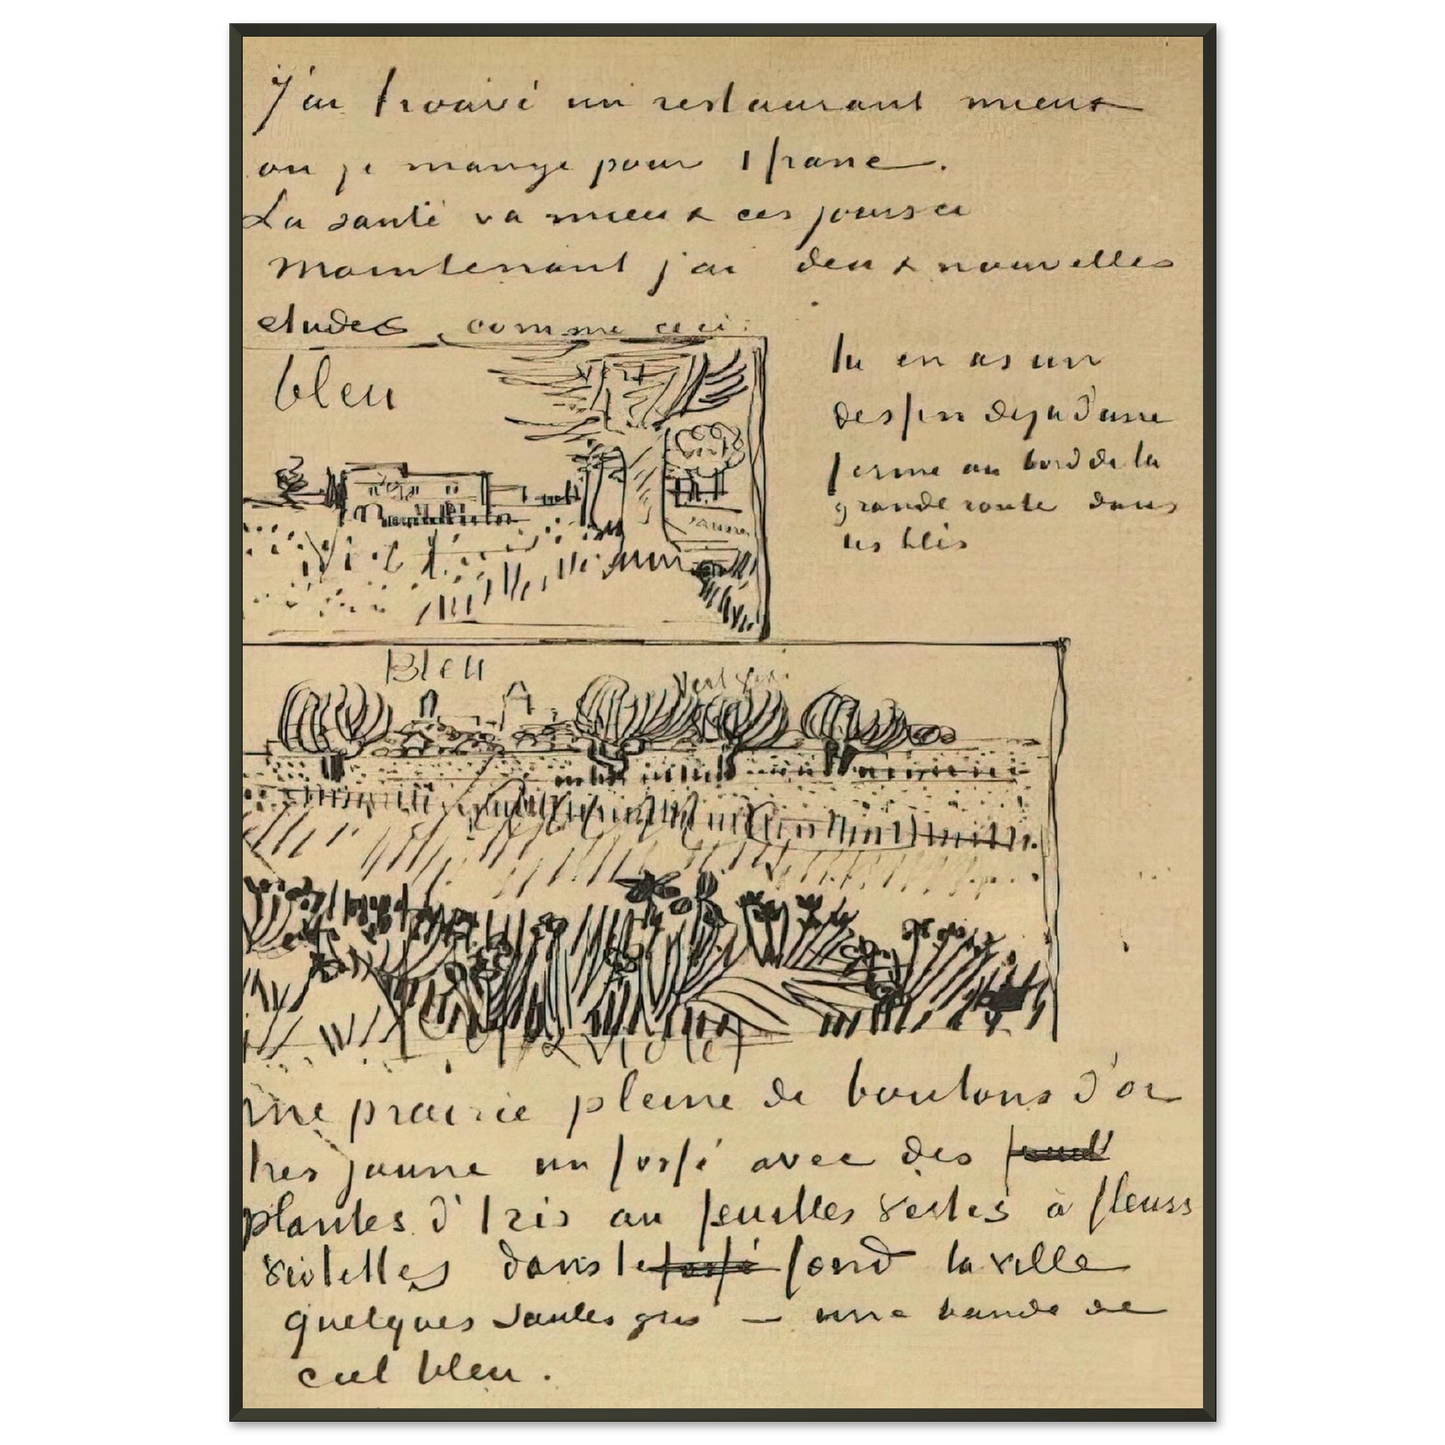 J'ai trouvé un restaurant mieux
ou je mange pour 1 franc.
La santé va mieux ces jours ci
Maintenant j'ai deux nouvelles
etudes comme ceci:
bleu
vert
tu en as un
dessin deja d'une
ferme au bord de la
grande route dans
les blés
vert
jaune
Violet
Bleu
Vert gris
Violet
Une prairie pleine de boutons d'or
tres jaune un fossé avec des
plantes d'Iris au feuilles vertes à fleurs
violettes dans le fossé fond la ville
quelques saules gris — une bande de
ciel bleu.